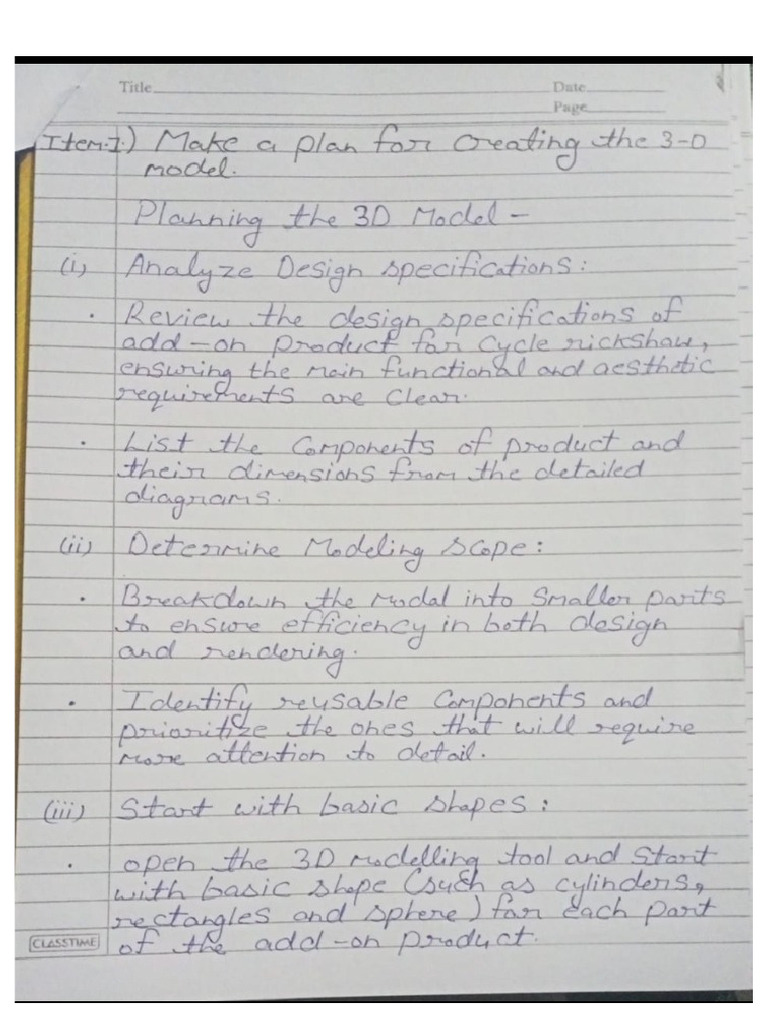 Title
Date
Page
Item.1.) Make a plan for creating the 3-D
model.
Planning the 3D Model -
(i) Analyze Design specifications:
. Review the design specifications of
add-on product for cycle rickshaw,
ensuring the main functional and aesthetic
requirements are clear.
. List the components of product and
their dimensions from the detailed
diagrams.
(ii) Determine Modeling scope:
. Breakdown the modal into smaller parts
to ensure efficiency in both design
and rendering.
. Identify reusable components and
prioritize the ones that will require
more attention to detail.
(iii) Start with basic shapes:
. open the 3D modelling tool and start
with basic shape (such as cylinders,
rectangles and sphere) for each part
of the add-on product.
CLASSTIME